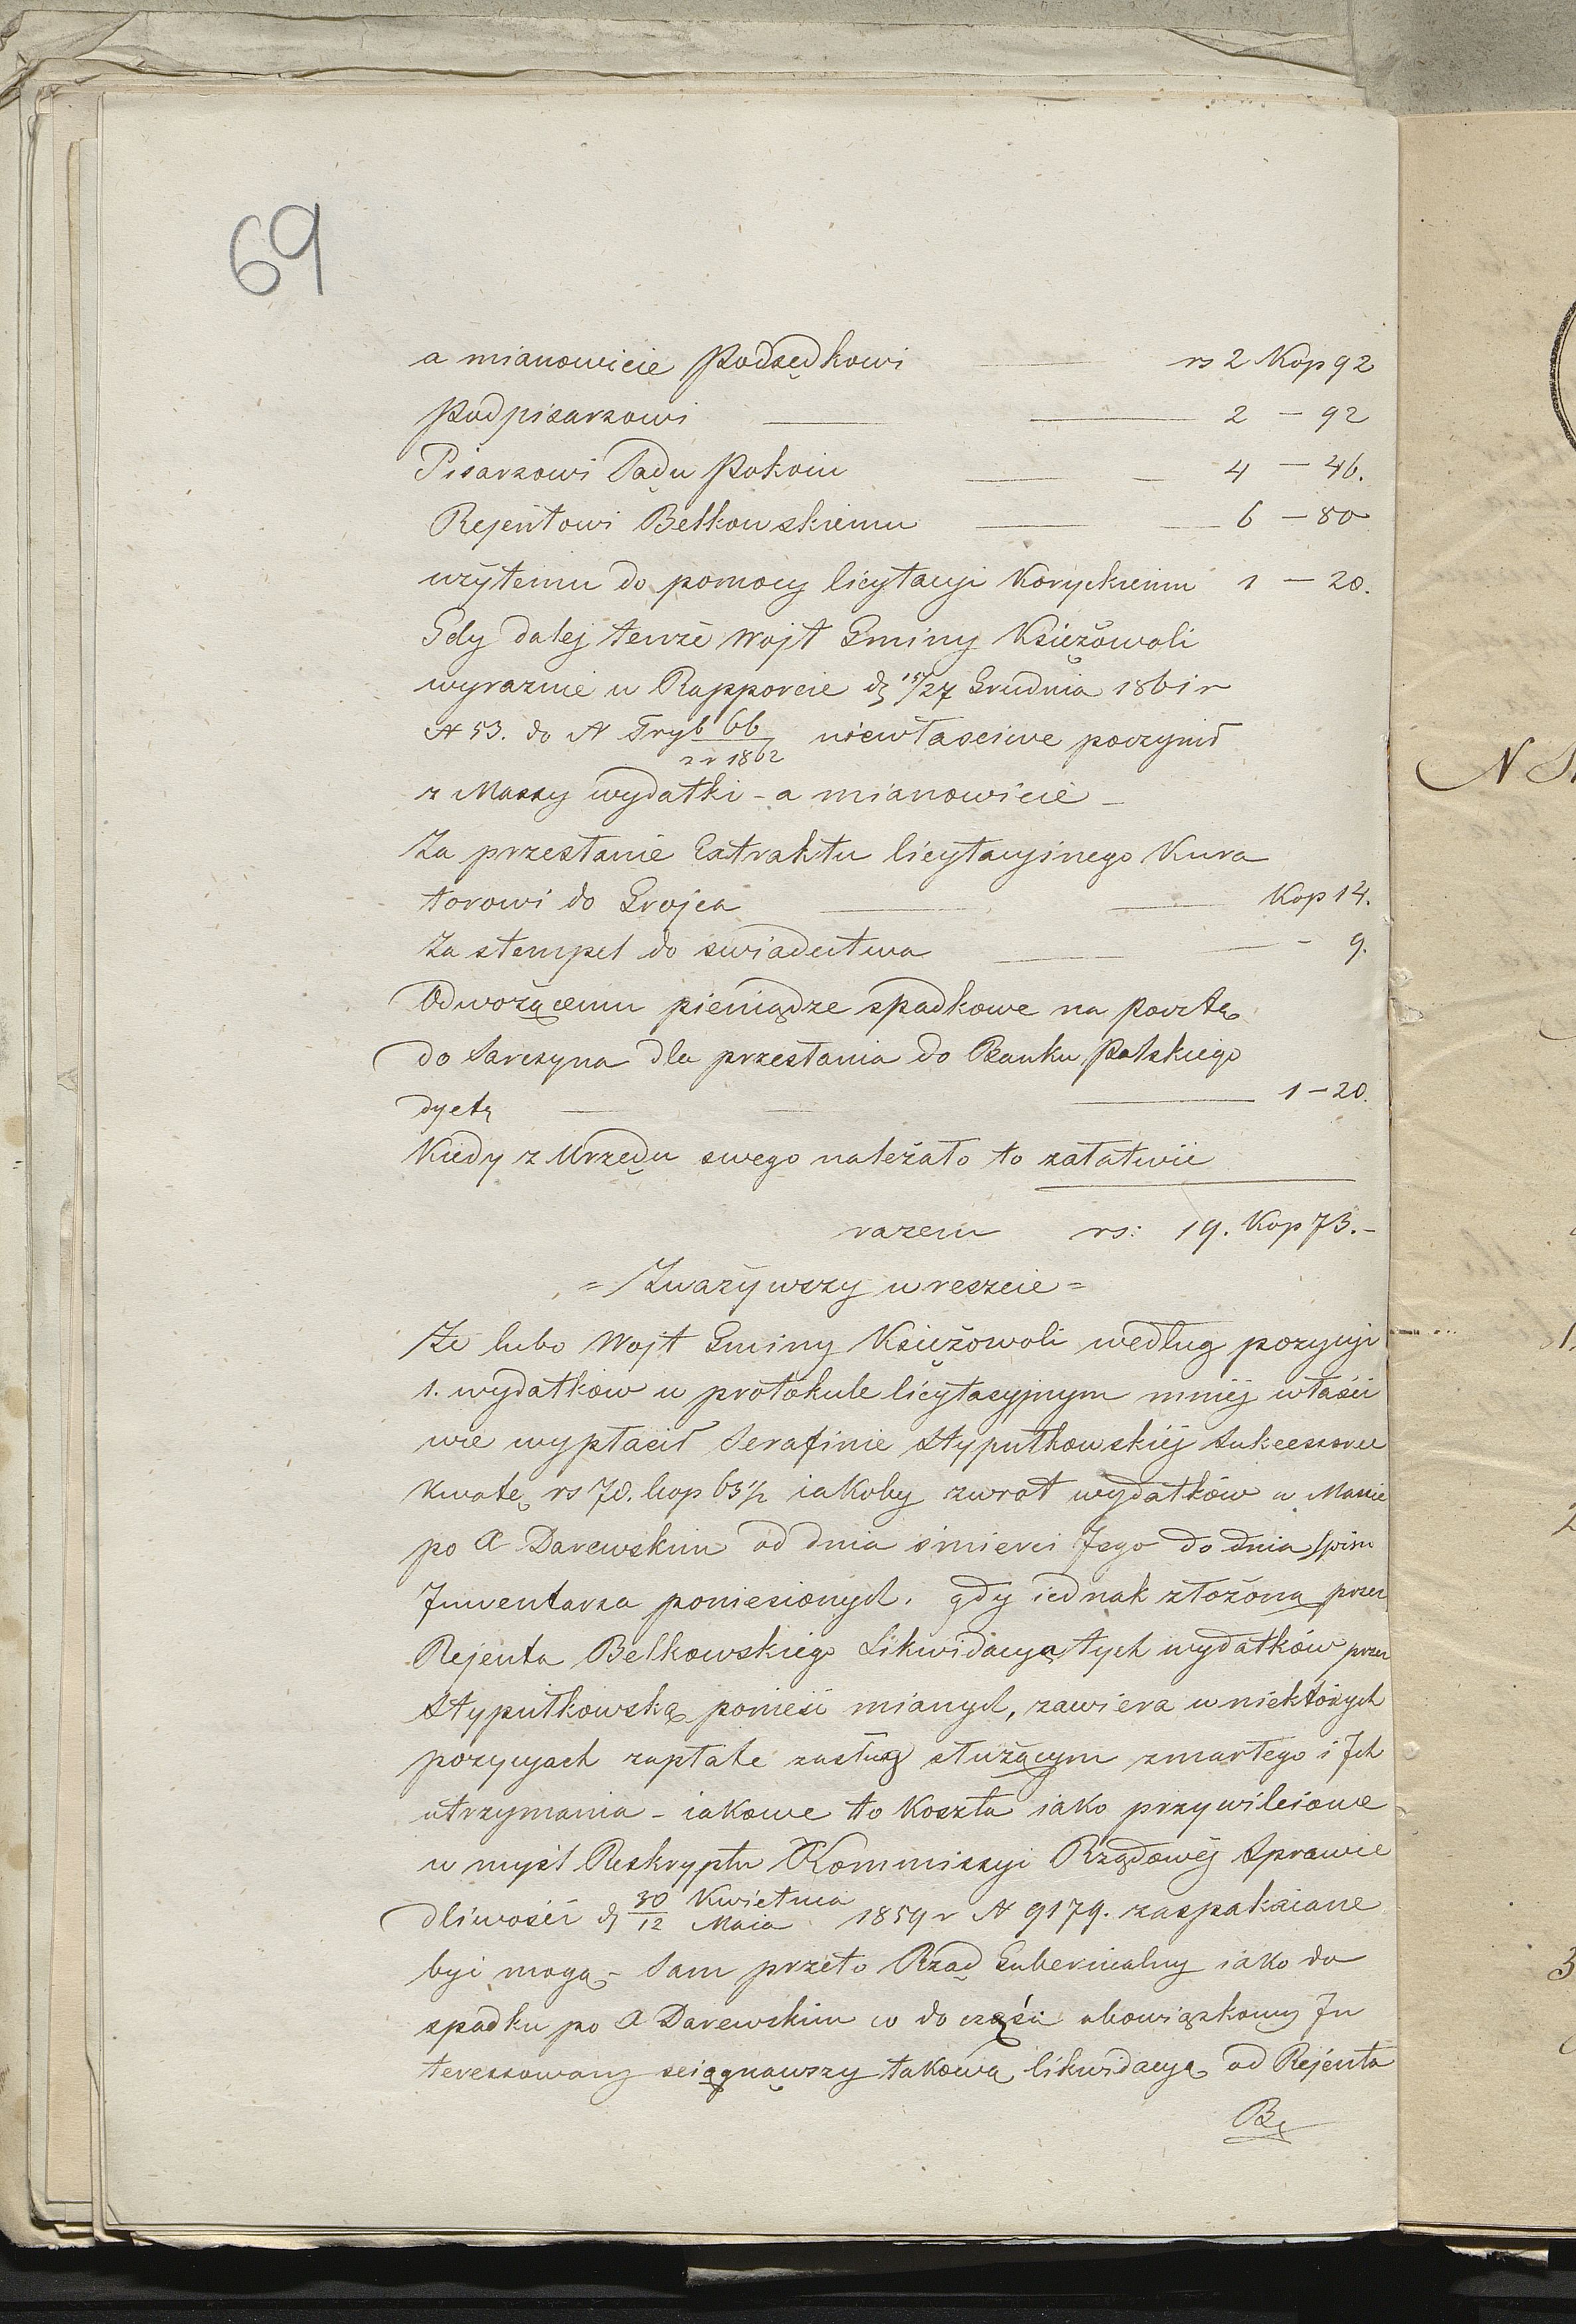 69
a mianowicie Podsędkowi — rs 2 Kop 92
Podpisarzowi — — 2 — 92
Pisarzowi Sądu Pokoiu — — 4 — 46.
Rejentowi Bełkowskiemu — — 6 — 80
użytemu do pomocy licytacyi Koryckiemu 1 — 20.
Gdy dalej tenże Wojt Gminy Księżowoli
wyraznie w Rapporcie dʒ 15/27 Grudnia 1861 r
N 53. do N Tryb 66/z r 1862 niewłasciwe poczynił
z Massy wydatki - a mianowicie -
Za przesłanie Extraktu licytacyjnego Kura
torowi do Grojca — — Kop 14.
Za stempel do swiadectwa — — - 9.
Odwożącemu pieniądze spadkowe na pocztę
do Tarczyna dla przesłania do Banku Polskiego
dyetę — — — 1 — 20.
Kiedy z Urzędu swego należało to załatwić
razem rs: 19. Kop 73.-
= Zważywszy wreszcie =
Ze lubo Wojt Gminy Księżowoli według pozycyi
1. wydatków w protokule licytacyjnym mniej właści
wie wypłacił Serafinie Stypułkowskiéj Sukcessorce
Kwotę rs 70. kop 63½ iakoby zwrot wydatków w Massie
po A Darewskim od dnia śmierci Jego do dnia spisu
Inwentarza poniesionych, gdy iednak złożona przez
Rejenta Bełkowskiego Likwidacya tych wydatków przez
Stypułkowską ponieść mianych, zawiera w niektórych
pozycyach zapłatę zasług służącym zmarłego i Ich
utrzymania - iakowe to Koszta iako przywileiowe
w myśl Reskryptu Kommissyi Rządowéj Sprawie
dliwości dʒ 30 Kwietnia/12 Maia 1859 r N 9179. zaspakaiane
być mogą - Sam przeto Rząd Gubernialny iako do
spadku po A Darewskim co do częśći obowiązkowey In
teressowany sciągnąwszy takową likwidacyą od Rejenta
Be